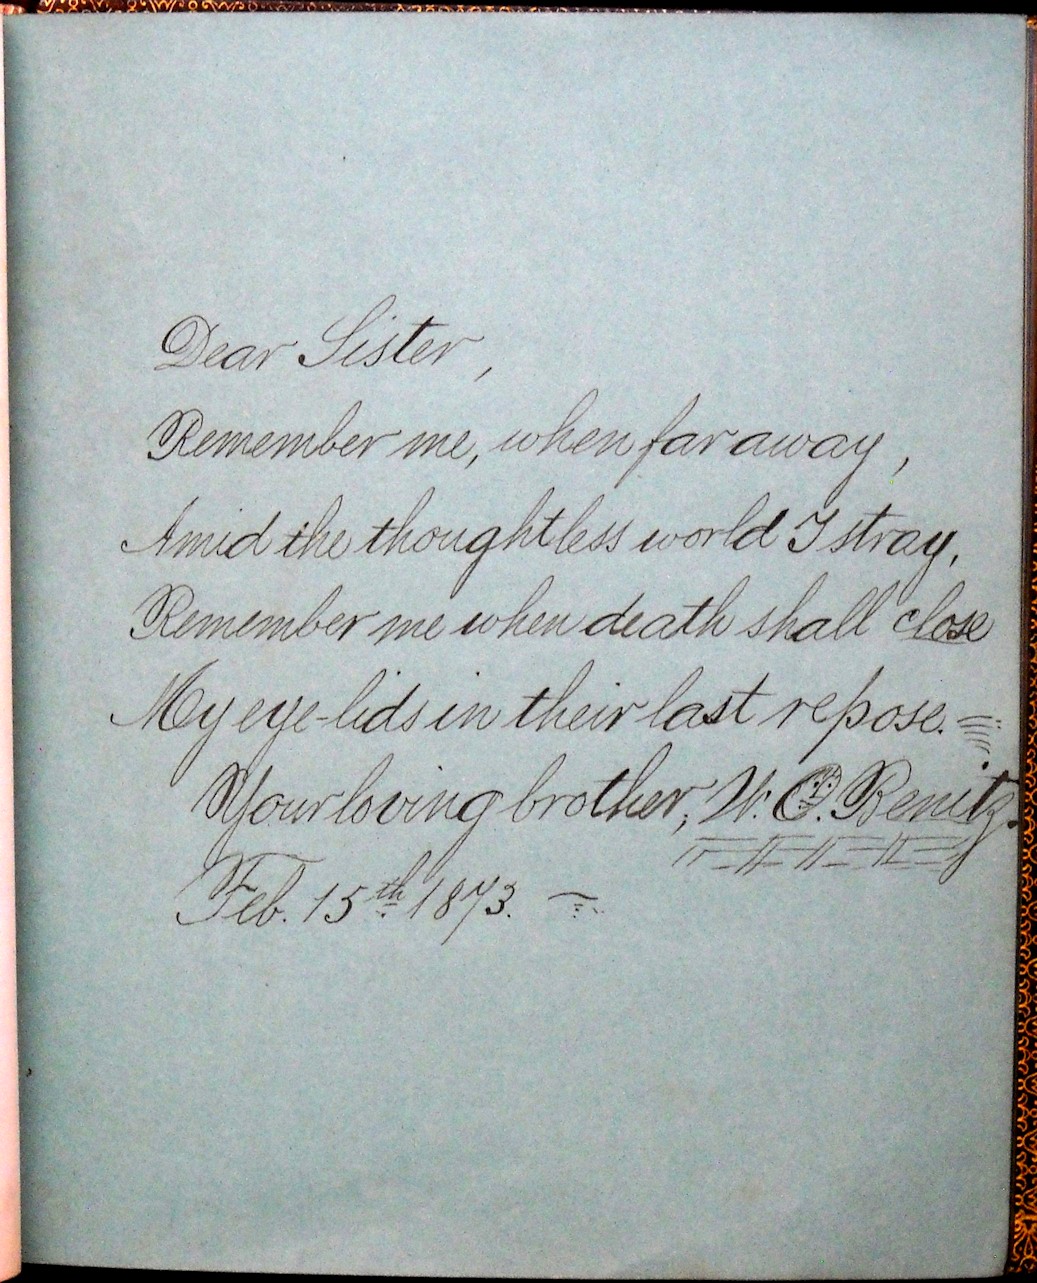 Dear Sister,
Remember me, when far away,
Amid the thoughtless world I stray,
Remember me when death shall close
My eye-lids in their last repose.
Your loving brother, W. O. Benitz.
Feb. 15th 1873.